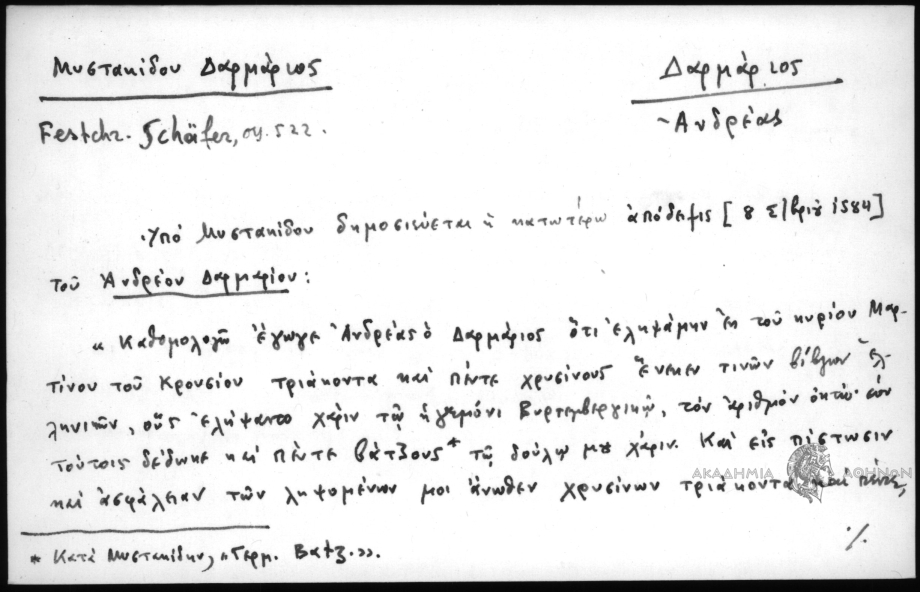 Μυστακίδου Δαρμάριος
Δαρμάριος
~Ανδρέας
Festchr. Schäfer, σσ. 522.
Ὑπό Μυστακίδου δημοσιεύεται ἡ κατωτέρω ἀπόδειξις [8 Σ/βρίȣ 1584]
τοῦ Ἀνδρέου Δαρμαρίου:
« Καθομολογῶ ἔγωγε Ἀνδρέας ὁ Δαρμάριος ὅτι ἐληψάμην ἐκ τοῦ κυρίου Μαρ-
τίνου τοῦ Κρουσίου τριάκοντα καί πέντε χρυσίνους ἕνεκεν τινῶν βίβλων ἑλ-
ληνικῶν, οὕς ἐλήψαντο χάριν τῷ ἡγεμόνι Βυρτεμβεργικῷ, τόν ἀριθμόν ὀκτώ· σύν
τούτοις δέδωκε καί πέντε βάτζους* τῷ δούλῳ μȣ χάριν. Καί εἰς πίστωσιν
καί ἀσφάλειαν τῶν ληψομένων μοι ἄνωθεν χρυσίνων τριάκοντα καί πέντε,
ΑΚΑΔΗΜΙΑ ΑΘΗΝΩΝ
·/.
* Κατά Μυστακίδην, «Γερμ. Βατζ.».